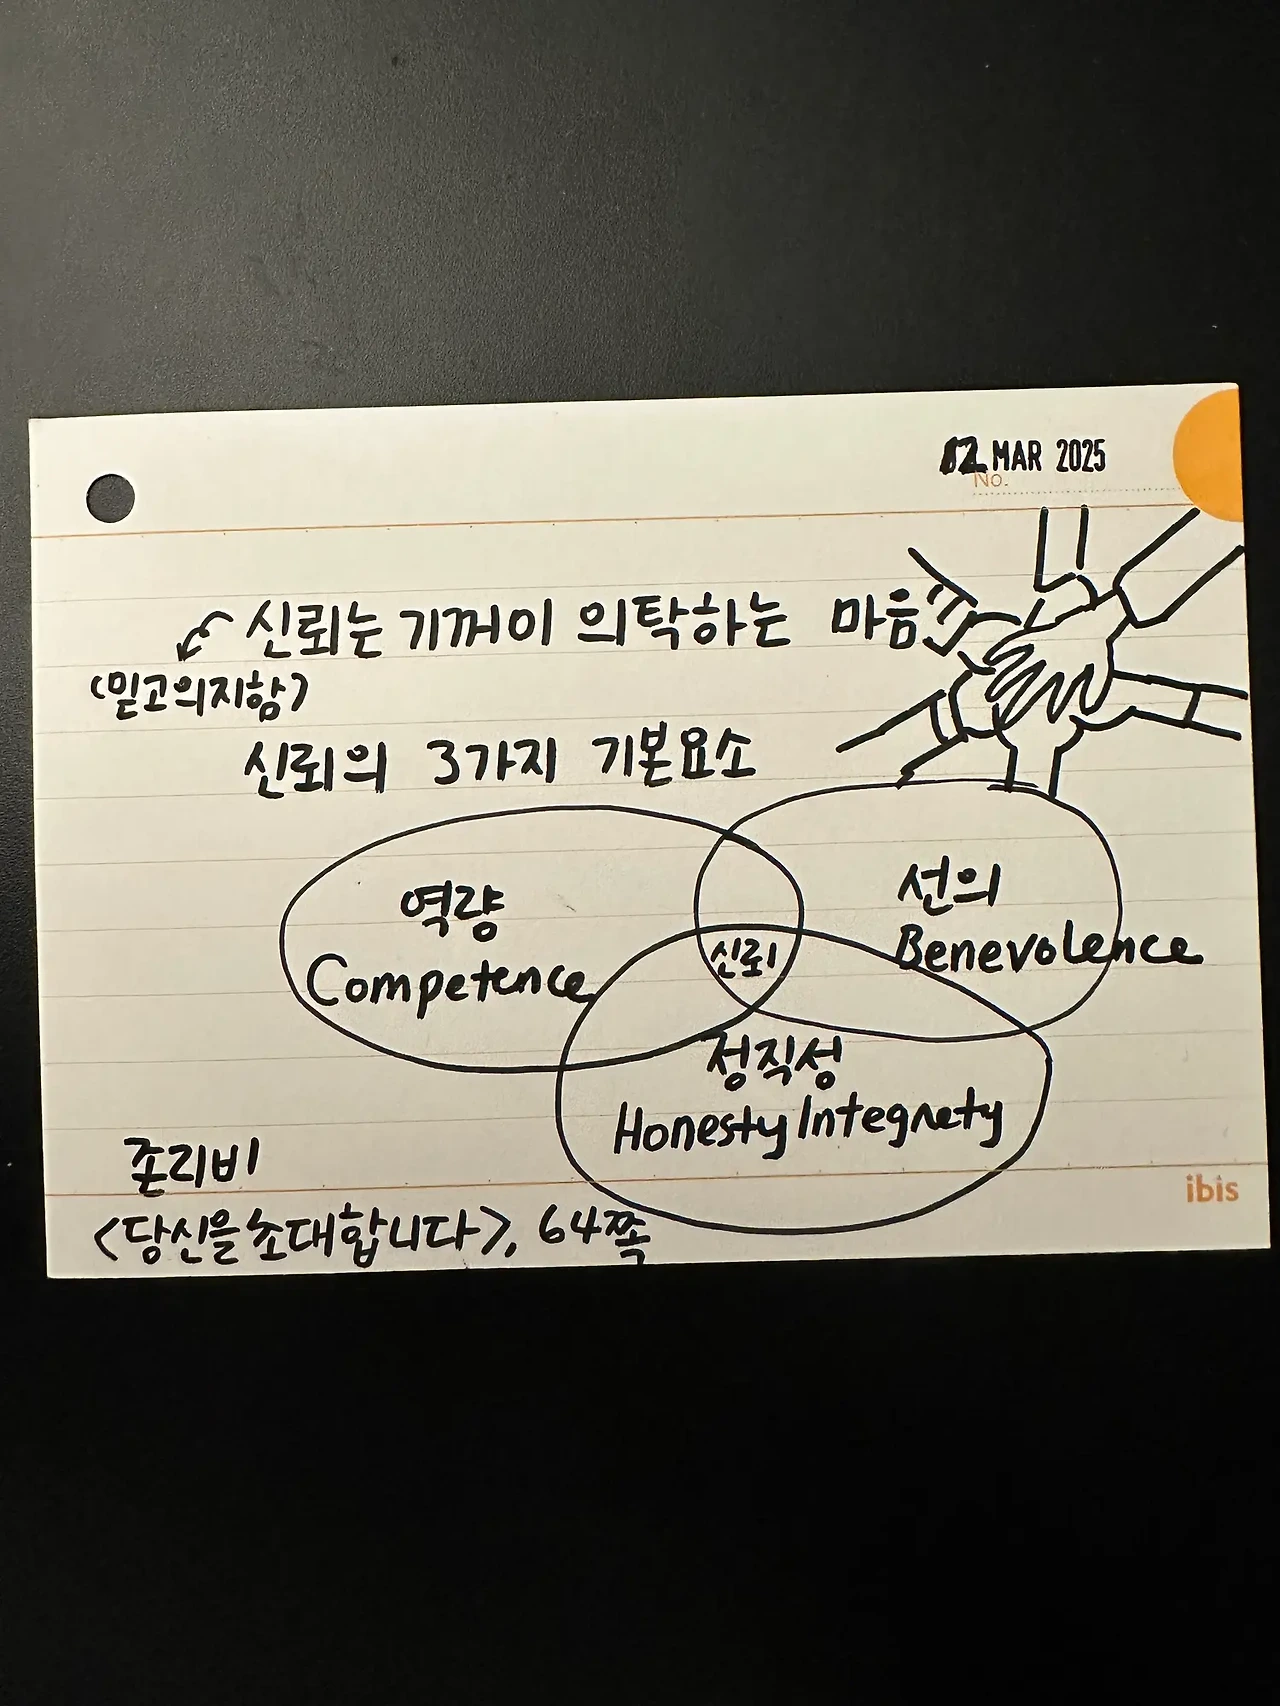 12 MAR 2025
No.
신뢰는 기꺼이 의탁하는 마음
(믿고의지함)
신뢰의 3가지 기본요소
역량
Competence
선의
Benevolence
신뢰
정직성
Honesty Integrety
존리비
<당신을초대합니다>, 64쪽
ibis